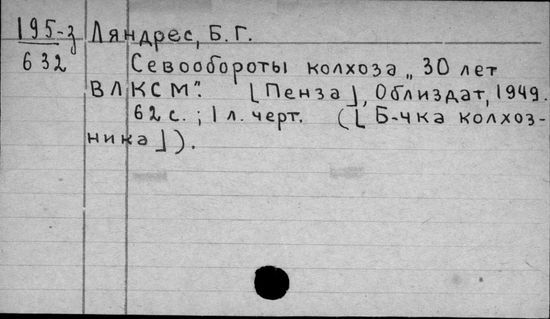 195-3 Ляндрес, Б. Г.
632 Севообороты колхоза „30 лет
ВЛКСМ". [Пенза], Облиздат, 1949.
62 с.; 1 л. черт. ([Б-чка колхоз-
ника]).